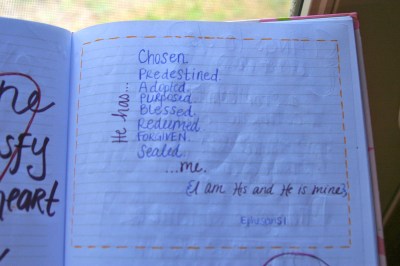 ne
sfy
heart
He has...
Chosen
Predestined.
Adopted.
Purposed
Blessed
Redeemed
Forgiven.
Sealed.
...me.
{I am His and He is mine}
Ephesians 1